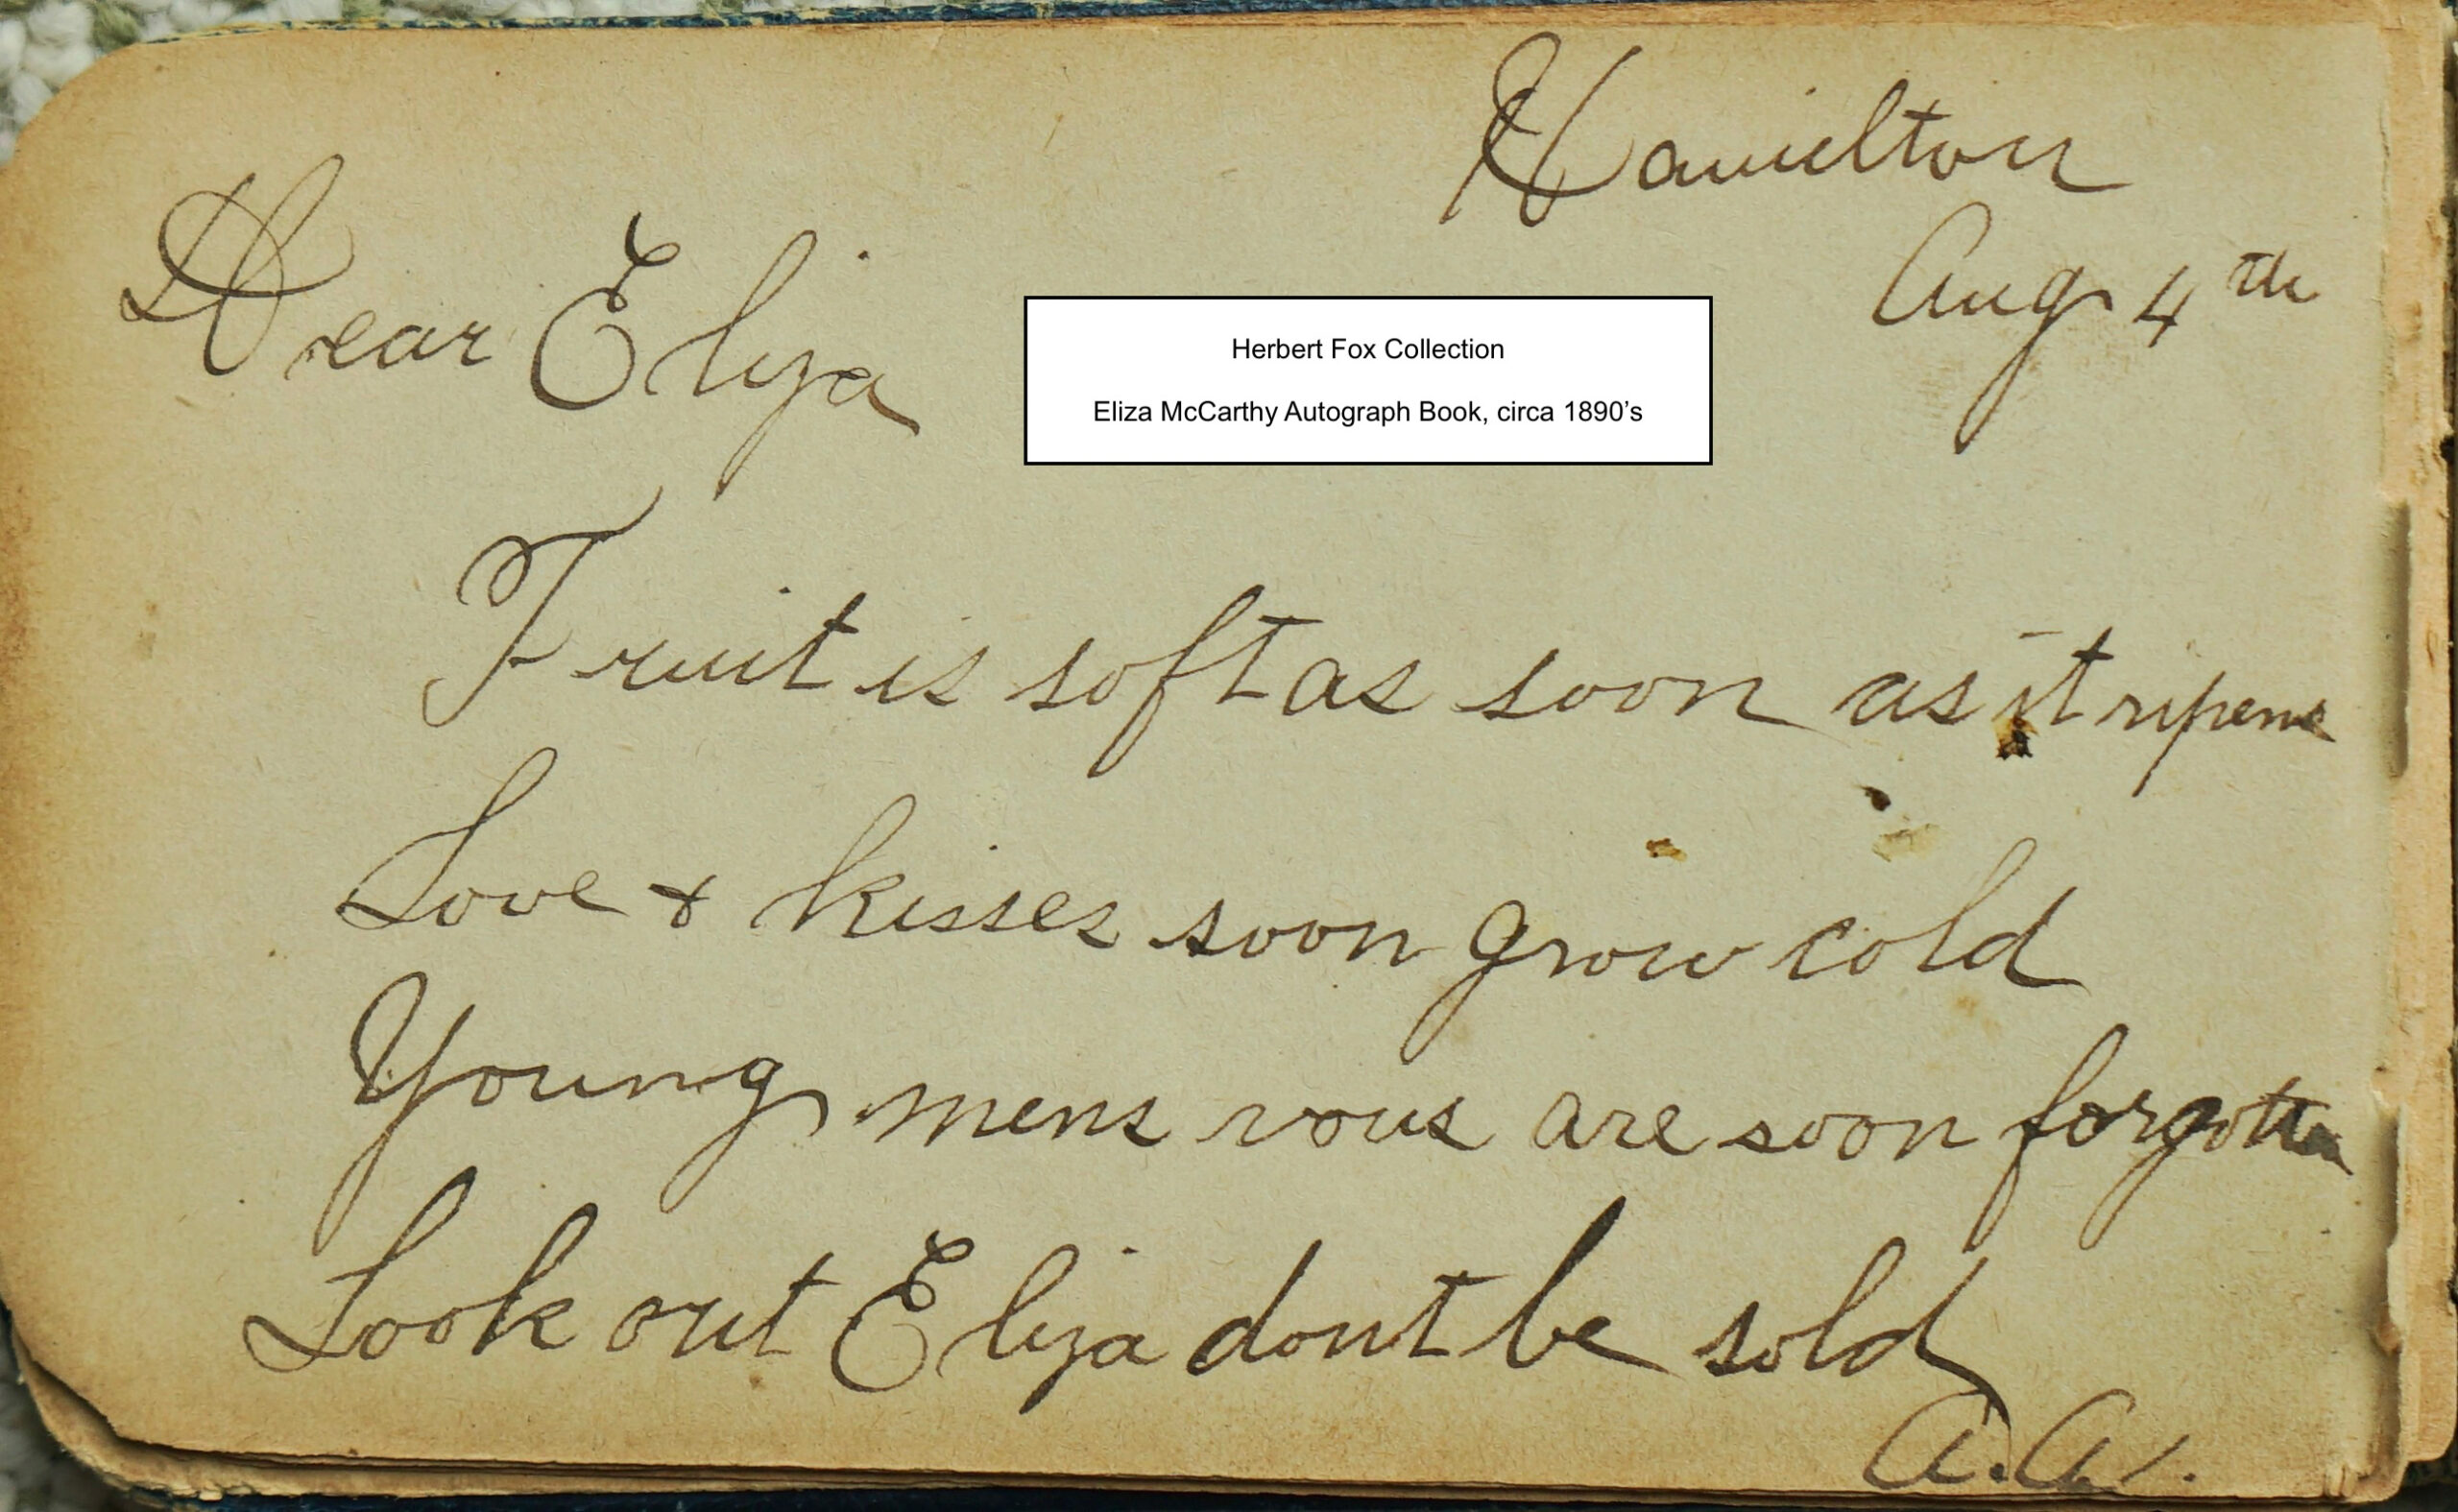 Hamilton
Aug 4th
Dear Eliza
Herbert Fox Collection
Eliza McCarthy Autograph Book, circa 1890’s
Fruit is soft as soon as it ripens
Love & kisses soon grow cold
Young mens vous are soon forgotten
Look out Eliza dont be sold
A.A.